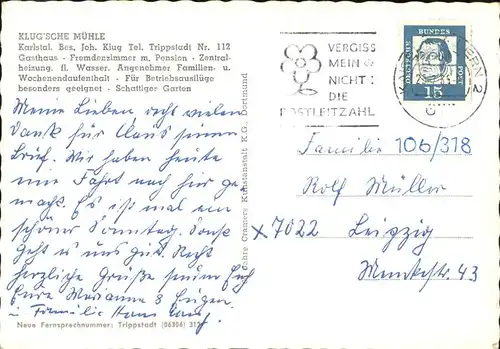 KLUG'SCHE MÜHLE
Karlstal. Bes. Joh. Klug Tel. Trippstadt Nr. 112
Gasthaus - Fremdenzimmer m. Pension - Zentral-
heizung. fl. Wasser. Angenehmer Familien- u.
Wochenendaufenthalt - Für Betriebsausflüge
besonders geeignet - Schattiger Garten
Meine Lieben recht vielen
Dank für Claus seinen
Brief. Wir haben heute
eine Fahrt nach hier ge-
macht. Es ist mal ein
schöner Sonntag. Sonst
geht es uns gut. Recht
herzliche Grüße senden Euch
Eure Marianne & Eugen
u. Familie Hans
Neue Fernsprechnummer: Trippstadt (06306)
Cramers Kunstanstalt K.G., Dortmund
VERGISS
MEIN
NICHT:
DIE
POSTLEITZAHL
DEUTSCHE
BUNDES
POST
15
2
Familie 106/318
Rolf Müller
x 7022 Leipzig
43